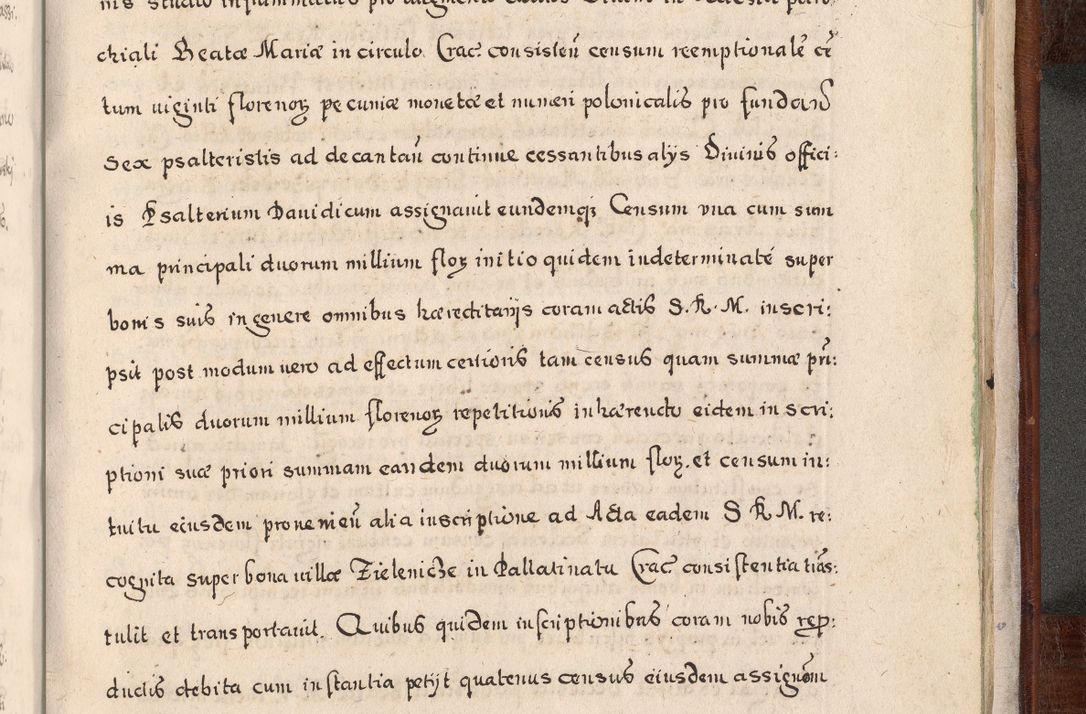 chiali Beatæ Mariæ in circulo Crac. consisteñ censum reemptionalē cē
tum viginti florenoꝝ pecuniæ monetæ et numeri polonicalis pro fundañ
sex psalteristis ad decantañ continue cessantibus alijs Diuinis offici:
is Psalterium Dauidicum assignauit eundemqꝫ Censum vna cum sum
ma principali duorum millium floꝝ initio quidem indeterminaté super
bonis suis in genere omnibus hæreditarijs coram actis S. R. M. inscri:
psit post modum uero ad effectum certioris tam census quam summæ pri:
cipalis duorum millium florenoꝝ repetitionis inhærendo eidem inscri:
ptioni suæ priori summam eandem duorum millium floꝝ. et censum in:
tuitu eiusdem prouenieñ alia inscriptione ad Acta eadem S R M. re:
cognita super bona uillæ Zielenicze in Pallatinatu Crac. consistentia trās:
tulit et transportauit. Quibus quidem inscriptionibus coram nobis rep:
ductis debita cum instantia petijt quatenus census eiusdem assignōm